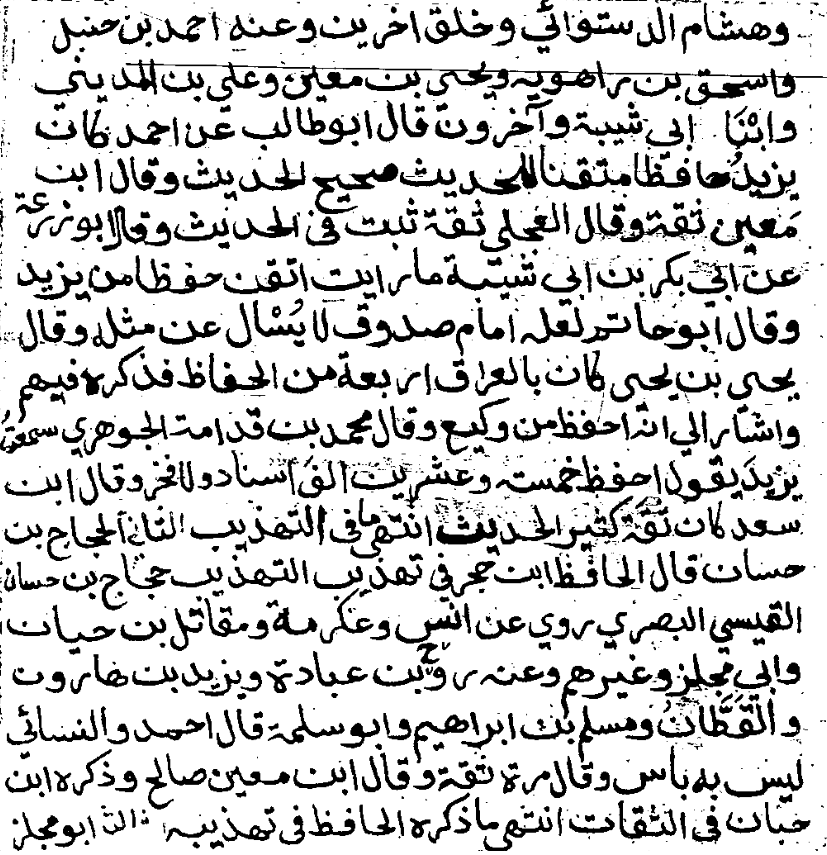 وهشام الدستوائي وخلق اخرين وعنه احمد بن حنبل
واسحق بن راهويه ويحيى بن معين وعلي بن المديني
وابْنَا ابي شيبة وآخرون قال ابو طالب عن احمد كان
يزيدُ حافظا متقنا للحديث صحيح الحديث وقال ابن
مَعين ثقة وقال العجلي ثقة ثبت في الحديث وقال ابو زرعة
عن ابي بكر بن ابي شيبة ما رايت اتقن حفظا من يزيد
وقال ابو حاتم لعله امام صدوق لا يُسْال عن مثله وقال
يحيى بن يحيى كان بالعراق اربعة من الحفاظ فذكره فيهم
واشار الي انه احفظ من وكيع وقال محمد بن قدامة الجوهري سمعتُ
يزيدَ يقول احفظ خمسة وعشرين الفَ اسناد ولا فخر وقال ابن
سعد كان ثقة كثير الحديث انتهى ما في التهذيب الثاني الحجاج بن
حسان قال الحافظ ابن حجر في تهذيب التهذيب حجاج بن حسان
القيسي البصري روي عن انس وعكرمة ومقاتل بن حيان
وابي مجلز وغيرهم وعنه روح بن عبادة ويزيد بن هارون
والقَطَّانُ ومسلم بن ابراهيم وابو سلمة قال احمد والنسائي
ليس به باس وقال مرة ثقة وقال ابن معين صالح وذكره ابن
حبان في الثقات انتهى ما ذكره الحافظ في تهذيبه الثالث ابو مجلز